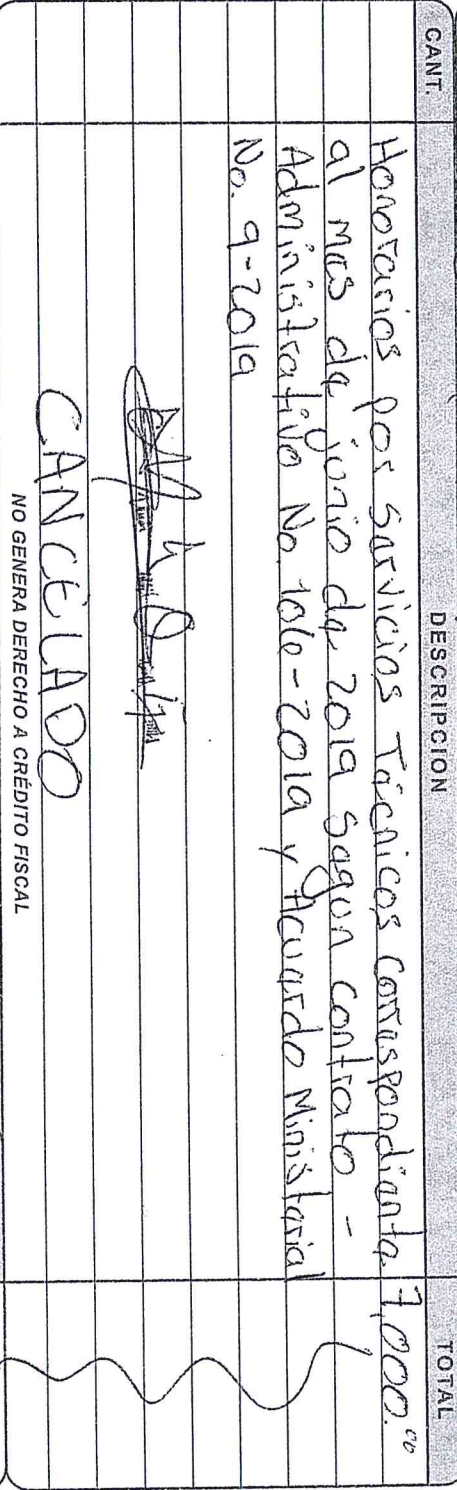 CANT. DESCRIPCION TOTAL
Honorarios por Servicios Técnicos Correspondiente 7,000.00
al mes de junio de 2019 segun contrato -
Administrativo No. 106-2019 y Acuerdo Ministerial
No. 9-2019
CANCELADO
NO GENERA DERECHO A CRÉDITO FISCAL